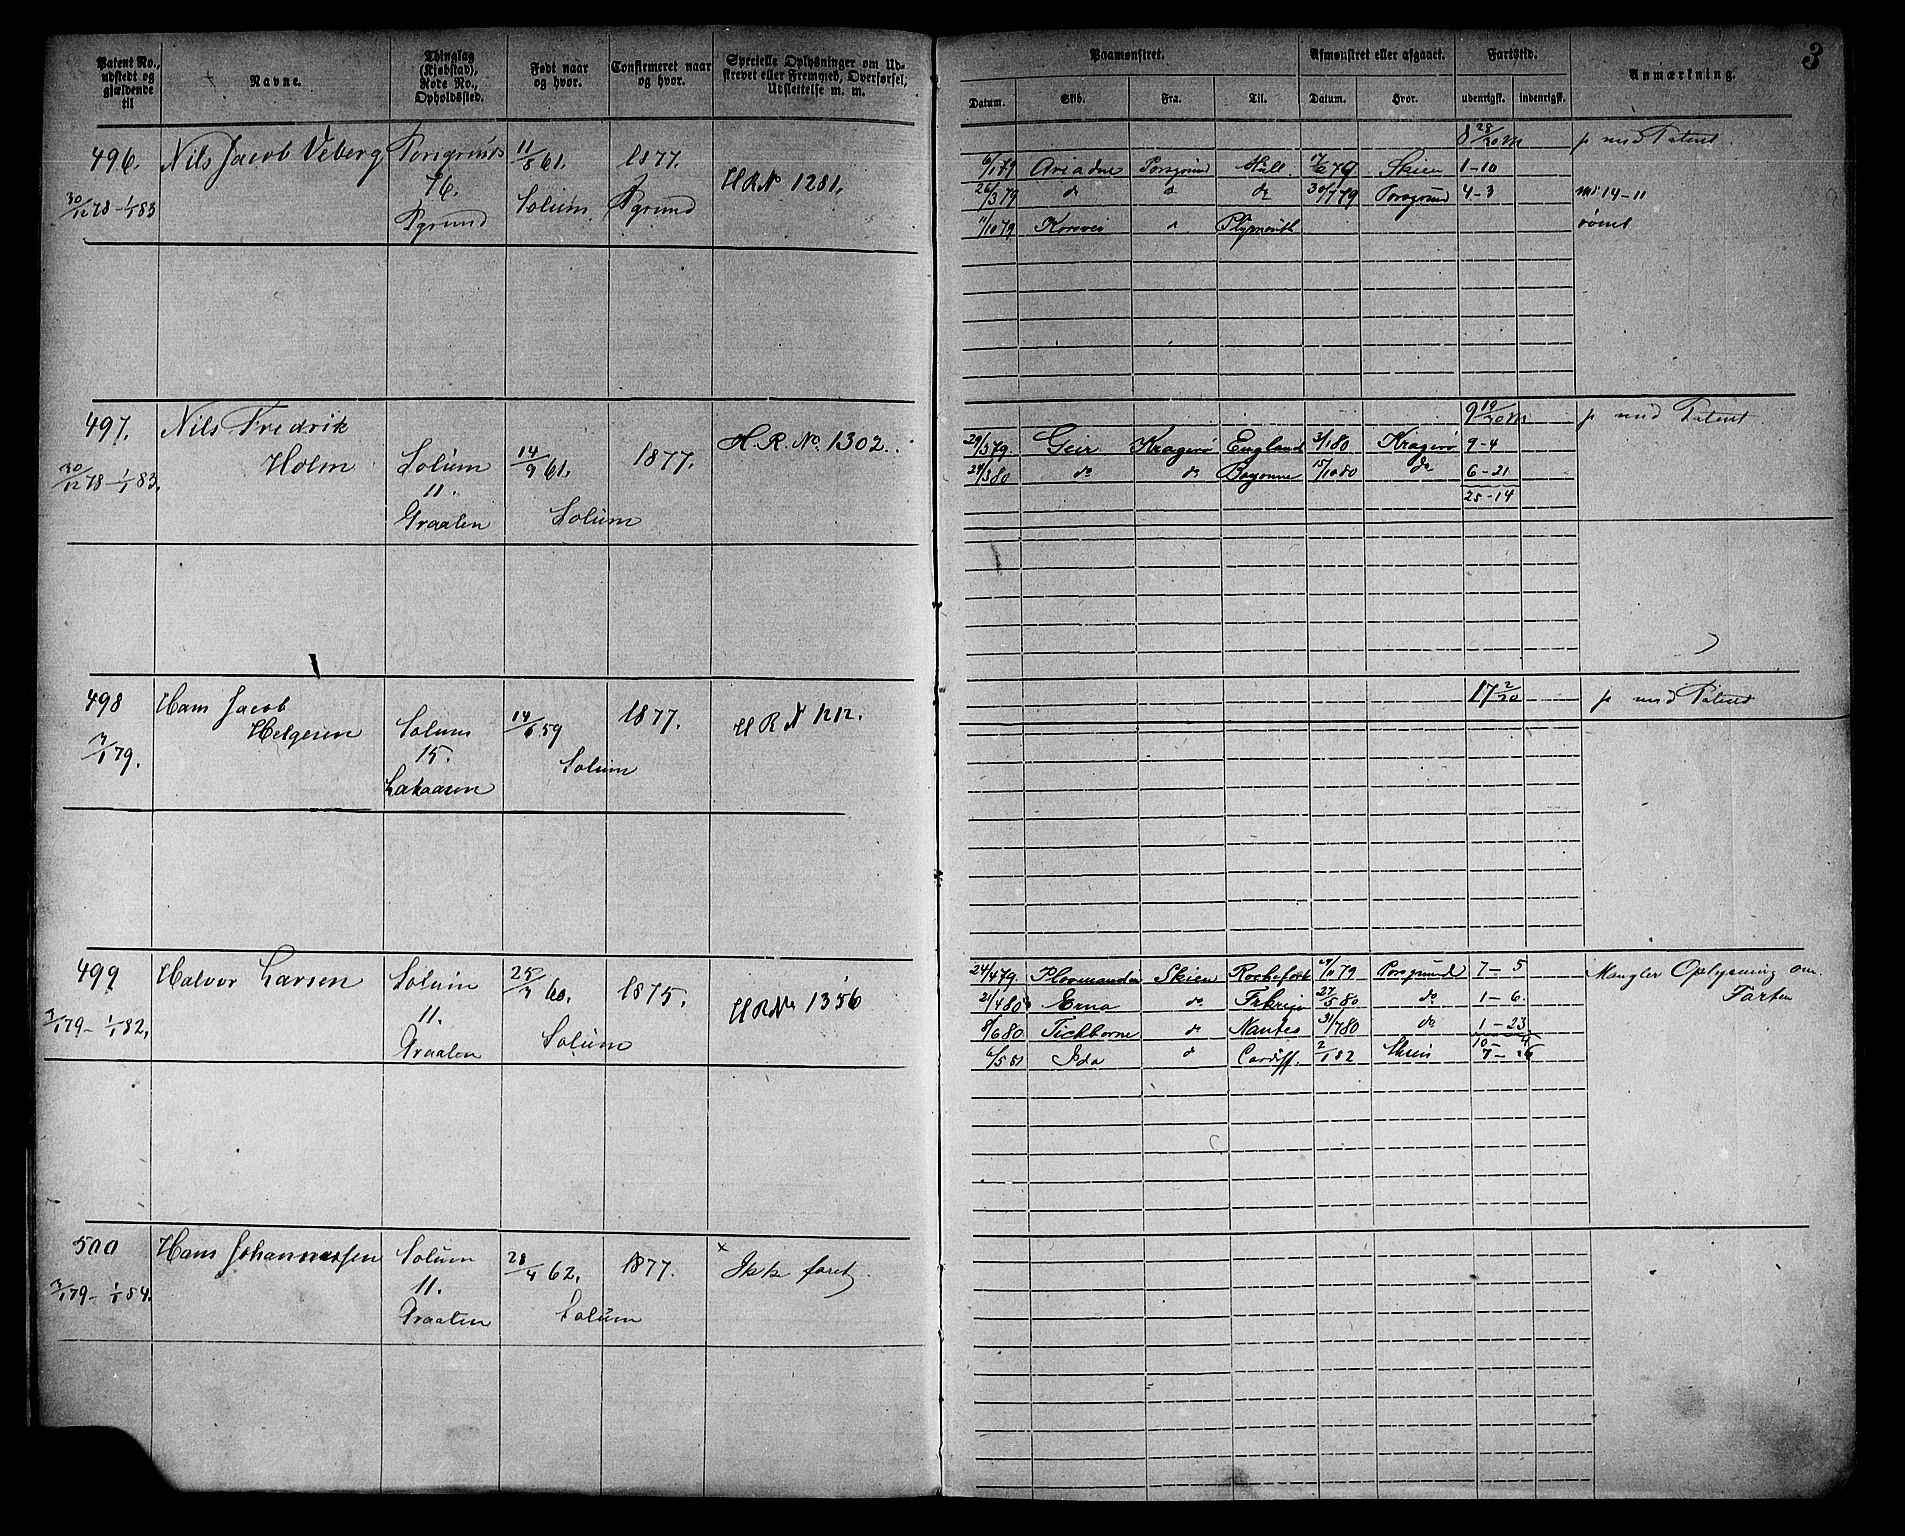 3
Patent No., udstedt og gjældende til
Navne.
Thinglag (Kjøbstad), Rode No., Opholdssted.
Født naar og hvor.
Confirmeret naar og hvor.
Specielle Oplysninger om Udskrevet eller Fremmed, Overførsel, Udslettelse m. m.
Paamønstret.
Afmønstret eller afgaaet.
Fartstid.
Anmærkning.
Datum. Skib. Fra. Til. Datum. Hvor. udenrigsk. indenrigsk.
8 28/30 M p med Patent
496. Nils Jacob Veberg Porsgrunds 11/8 61. 1877. H R No 1281.
76. Solum. Pgrund
30/12 78 - 1/1 83 Pgrund
6/1 79 Ariadne Porsgrund Hull 17/2 79 Skien 1-10
26/3 79 do do do 30/7 79 Porsgrund 4-3 14-11
11/10 79 Korsvei do Plymouth rømt
9 19/30 M p med Patent
497. Nils Fredrik
Holm Solum 14/9 61. 1877. H. R. No. 1302.
30/12 78 - 1/1 83. 11.
Graaten Solum
29/3 79. Geir Kragerø England 3/1 80 Kragerø 9-4
24/3 80 do do Bayonne 15/10 80 do 6-21
25-14
17 2/30 p med Patent
498 Hans Jacob
Helgesen Solum 14/6 59 1877. H R N 1212.
3/1 79. 15. Solum
499 Halvor Larsen Solum 25/3 60. 1875. H R No 1356
3/1 79 - 1/1 82. 11.
Graaten Solum
24/4 79. Skien Rochefort 29/10 79 Porsgrund 7-5 Mangler Oplysning om
Farten
21/4 80 Erna do 27/5 80 do 1-6.
8/6 80 Tichborne do Nantes 31/7 80 do 1-23
10-4
6/5 81 Ida do Cardiff. 2/1 82 Skien 7-26
500 Hans Johannessen Solum 28/4 62. 1877. × Ikke faret.
3/1 79 - 1/1 84. 11.
Graaten Solum